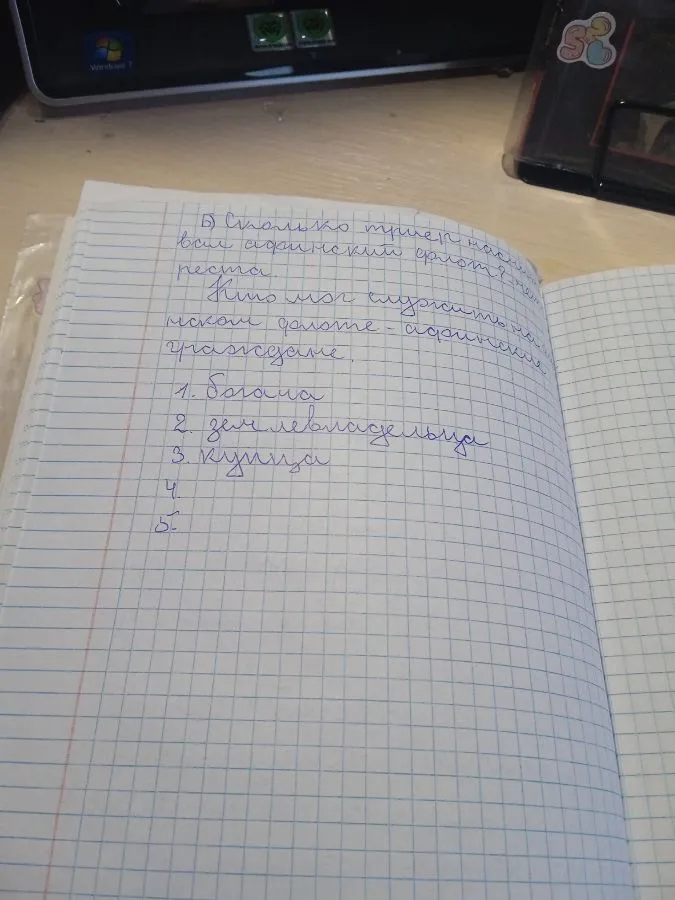 Windows 7
Б) Сколько триер насчиты
вал афинский флот?
реста.
Кто мог служить на
нском флоте - афинские
граждане.
1. богача
2. землевладельца
3. купца
4.
5.